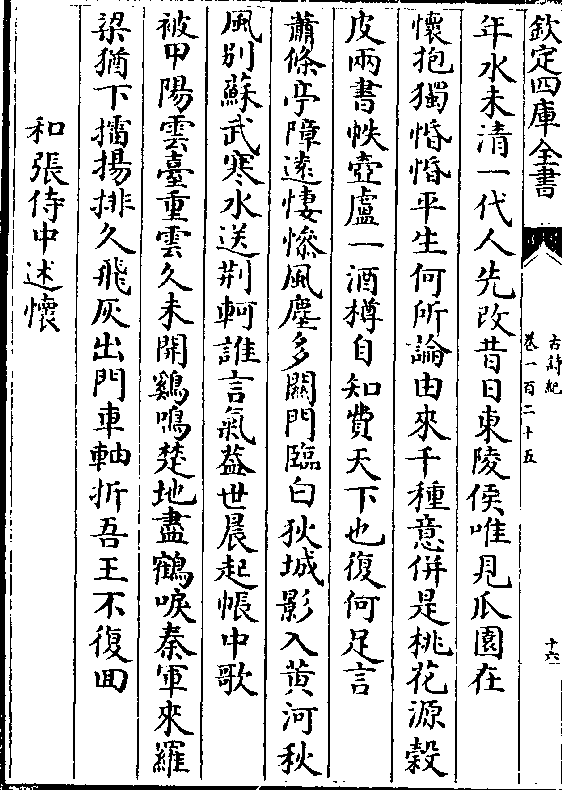 欽定四庫全書
古詩紀
卷一百二十五
十六
年水未清一代人先改昔日東陵侯唯見瓜園在
懷抱獨惛惛平生何所論由來千種意併是桃花源穀
皮兩書帙壺盧一酒樽自知費天下也復何足言
蕭條亭障遠悽慘風塵多關門臨白狄城影入黃河秋
風别蘇武寒水送荆軻誰言氣葢世晨起帳中歌
被甲陽雲臺重雲久未開鷄鳴楚地盡鶴唳秦軍來羅
梁猶下擂揚排久飛灰出門車軸折吾王不復回
和張侍中述懷